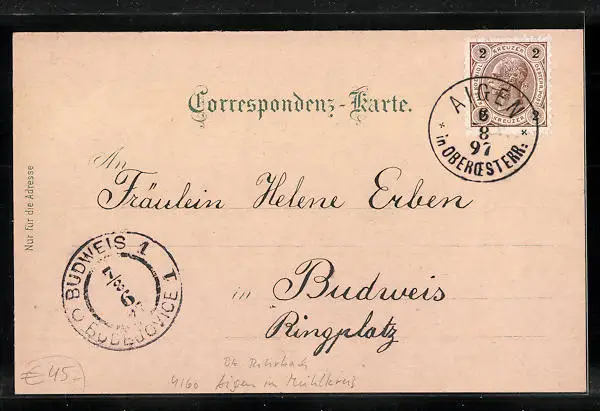 2 KREUZER 2
2 KREUZER 2
AIGEN
6
8
97
* in OBERŒSTERR: *
Correspondenz-Karte.
An
Fräulein Helene Erben
in Budweis
Ringplatz
Nur für die Adresse
BUDWEIS 1
7/8
BUDĚJOVICE
€ 45.-
4160 Aigen im Mühlkreis